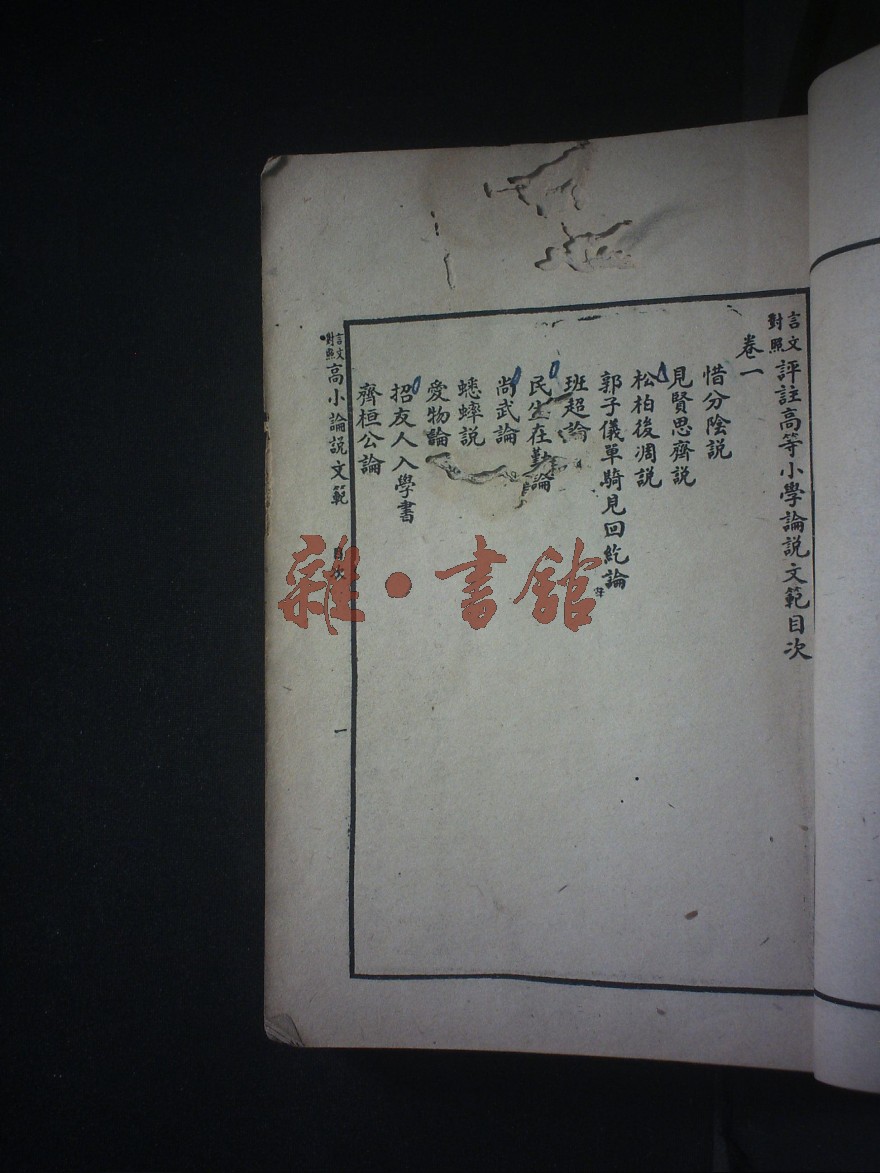 言文對照評註高等小學論説文範目次
卷一
惜分陰説
見賢思齊説
松柏後凋説
郭子儀單騎見回紇論
班超論
民生在勤論
尚武論
蟋蟀説
愛物論
招友人入學書
齊桓公論
言文對照高小論説文範 目次 一
雜·書館